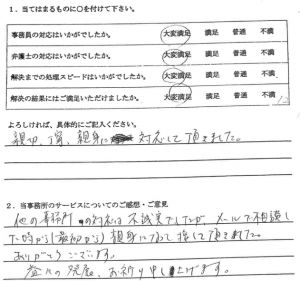 1．当てはまるものに○を付けて下さい。
事務員の対応はいかがでしたか。 大変満足 満足 普通 不満
弁護士の対応はいかがでしたか。 大変満足 満足 普通 不満
解決までの処理スピードはいかがでしたか。 大変満足 満足 普通 不満
解決の結果にはご満足いただけましたか。 大変満足 満足 普通 不満
よろしければ、具体的にご記入ください。
親切、丁寧、親身に対応して頂きました。
2．当事務所のサービスについてのご感想・ご意見
他の事務所の対応は不誠実でしたが、メールで相談し
た時から(最初から)親身になって接して頂きました。
ありがとうございます。
益々の発展、お祈り申し上げます。